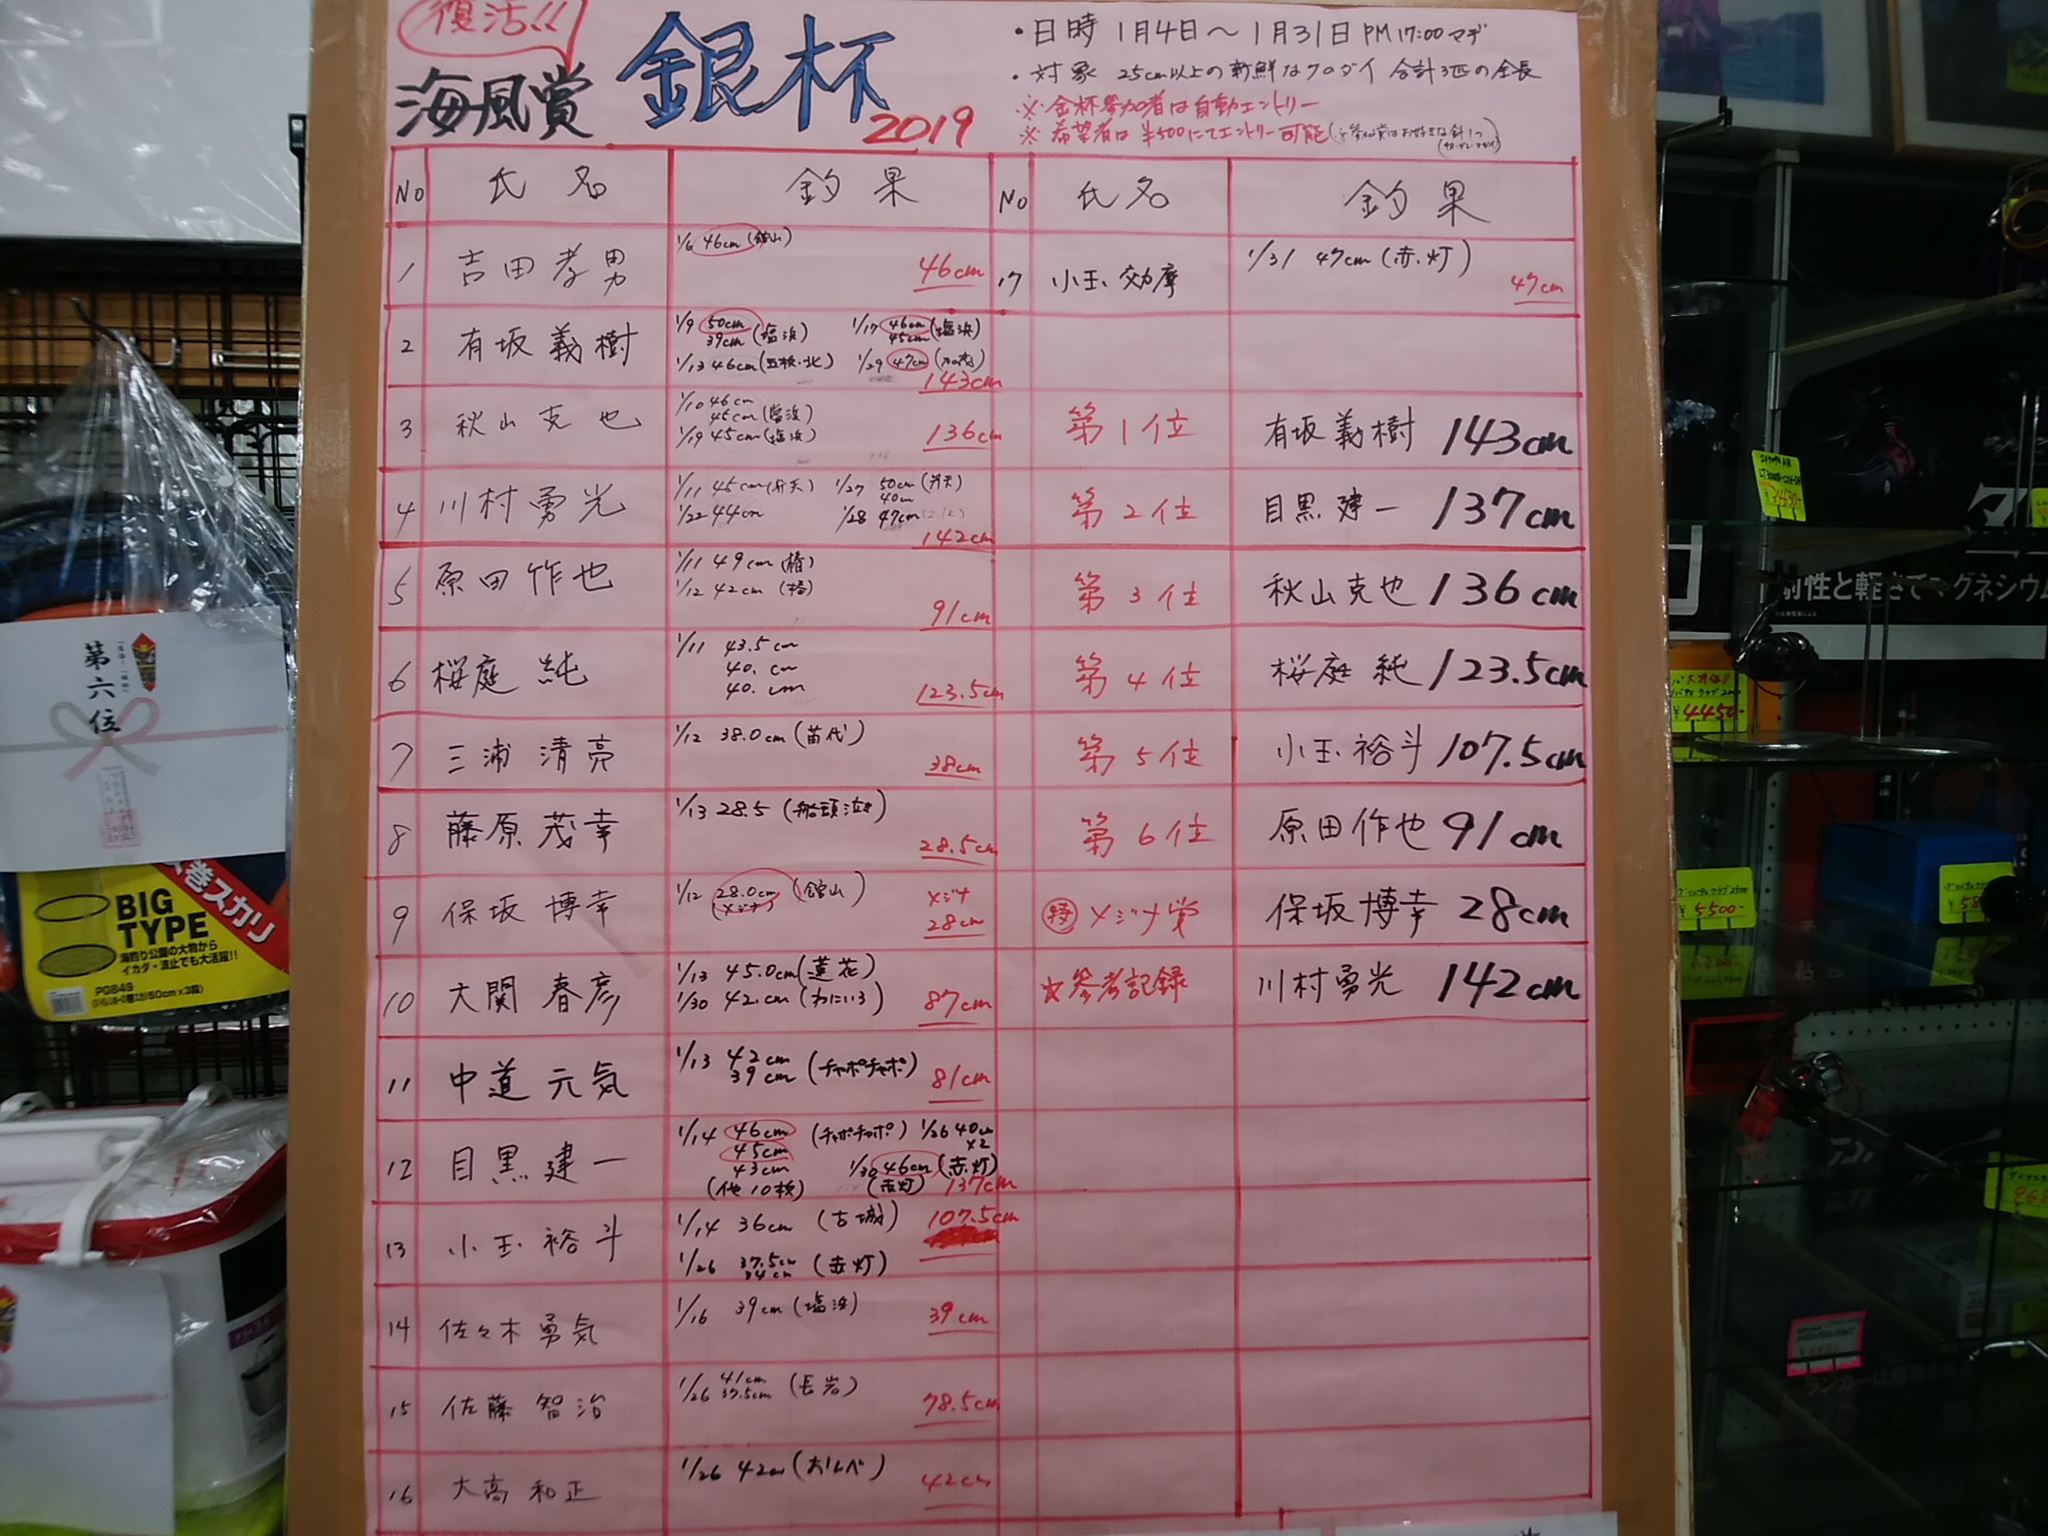 復活!!
海風賞 銀杯 2019
・日時 1月4日〜1月31日PM17:00マデ
・対象 25cm以上の新鮮なクロダイ 合計3匹の全長
※金杯参加者は自動エントリー
※希望者は ¥500にてエントリー可能
No 氏名 釣果 No 氏名 釣果
1 吉田孝男 1/6 46cm(館山) 46cm
2 有坂義樹 1/9 50cm 39cm(塩浜) 1/17 46cm 45cm(塩浜)
1/13 46cm 1/29 47cm 143cm
3 秋山克也 1/10 46cm
45cm
1/19 45cm(塩浜) 136cm
4 川村勇光 1/11 45cm(弁天) 1/27 50cm(弁天) 40cm
1/22 44cm 1/28 47cm 142cm
5 原田作也 1/11 49cm(椿)
1/12 42cm(椿) 91cm
6 桜庭純 1/11 43.5cm
40.cm
40.cm 123.5cm
7 三浦清亮 1/12 38.0cm(苗代) 38cm
8 藤原茂幸 1/13 28.5(船頭泣き) 28.5cm
9 保坂博幸 1/12 28.0cm(メジナ)(館山) メジナ 28cm
10 大関春彦 1/13 45.0cm(蓮花)
1/30 42.cm(わにいろ) 87cm
11 中道元気 1/13 42cm
39cm(チャポチャポ) 81cm
12 目黒建一 1/14 46cm(チャポチャポ) 1/26 40cm×2
45cm
43cm 1/30 46cm(赤灯)
(他10枚) (赤灯) 137cm
13 小玉裕斗 1/14 36cm(古城) 107.5cm
1/26 37.5cm 34cm(赤灯)
14 佐々木勇気 1/16 39cm(塩浜) 39cm
15 佐藤智治 1/26 41cm 37.5cm(長岩) 78.5cm
16 大高和正 1/26 42cm 42cm
17 小玉効摩 1/31 47cm(赤灯) 47cm
第1位 有坂義樹 143cm
第2位 目黒建一 137cm
第3位 秋山克也 136cm
第4位 桜庭純 123.5cm
第5位 小玉裕斗 107.5cm
第6位 原田作也 91cm
特 メジナ賞 保坂博幸 28cm
☆参考記録 川村勇光 142cm
第六位
BIG
TYPE
海釣り公園の大物から
イカダ・波止でも大活躍!!
PG849
剛性と軽さでマグネシウム
¥4450-
¥5500-